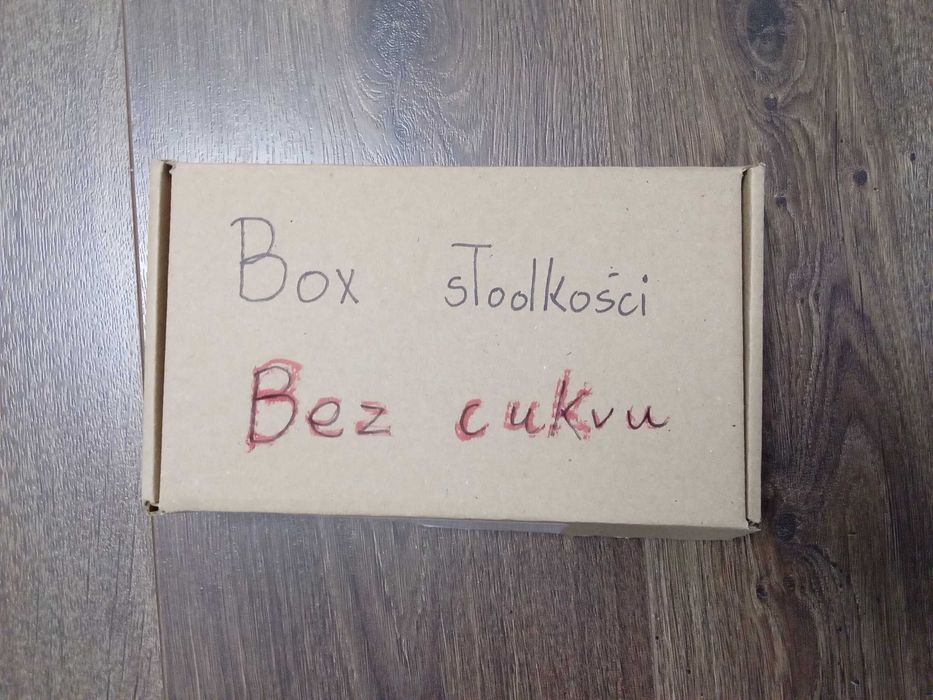 Box słodkości
Bez cukru